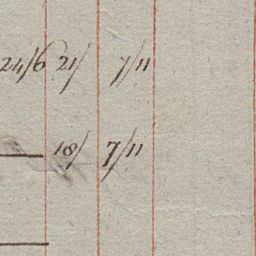 24/6 21/ 7/11
18/ 7/11